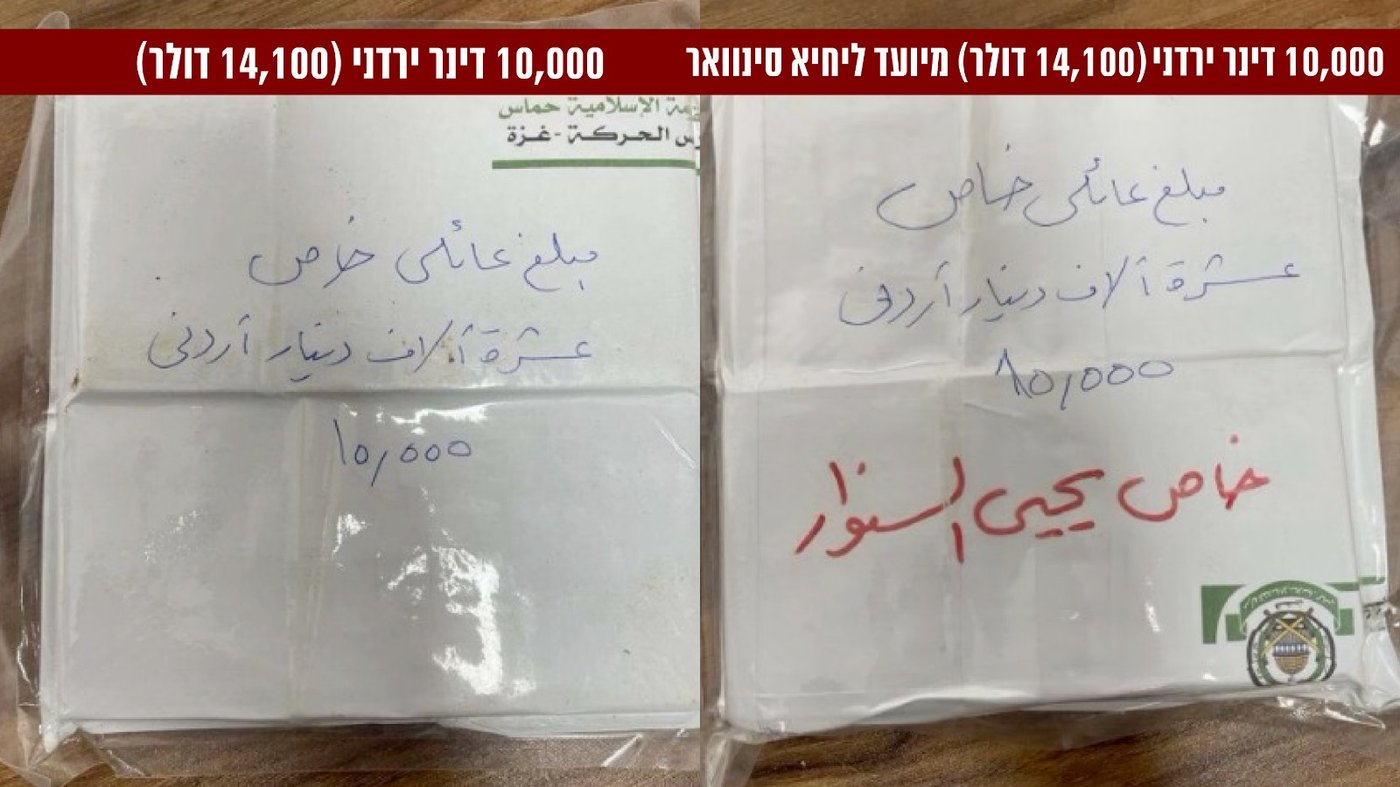 10,000 דינר ירדני (14,100 דולר)
الإسلامية حماس
الحركة - غزة
مبلغ عائلي خاص
عشرة آلاف دينار أردني
10,000
10,000 דינר ירדני (14,100 דולר) מיועד ליחיא סינוואר
مبلغ عائلي خاص
عشرة آلاف دينار أردني
10,000
خاص يحيى السنوار